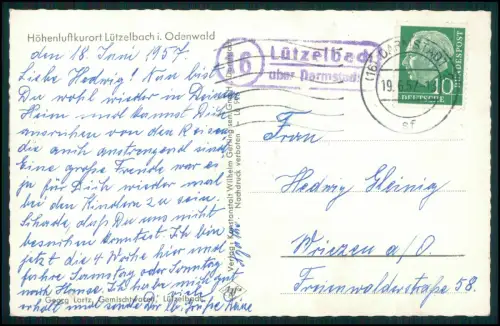 Höhenluftkurort Lützelbach i. Odenwald
den 18 Juni 1957.
Liebe Hedwig! Nun bist
Du wohl wieder in Deinem
Heim und kannst Dich
ausruhen von den Reisen
die auch anstrengend sind.
Eine große Freude war es
ja für Dich wieder mal
bei den Kindern zu sein.
Schade, daß Du uns nicht
besuchen konntest. Ich bin
jetzt die 4 Woche hier und
fahre Samstag oder Sonntag
nach Hause. Ich habe mich gut
erholt und sende Dir Grüße
Georg Lortz, Gemischtwaren, Lützelbach
Verlag: Kunstanstalt Wilhelm Gerling
Nachdruck verboten
16
Lützelbach
über Darmstadt
(16) DARMSTADT
19.6.
ef
DEUTSCHE
BUNDESPOST
10
Frau
Hedwig Gleinig
Wriezen a/O.
Freienwalderstraße 58.